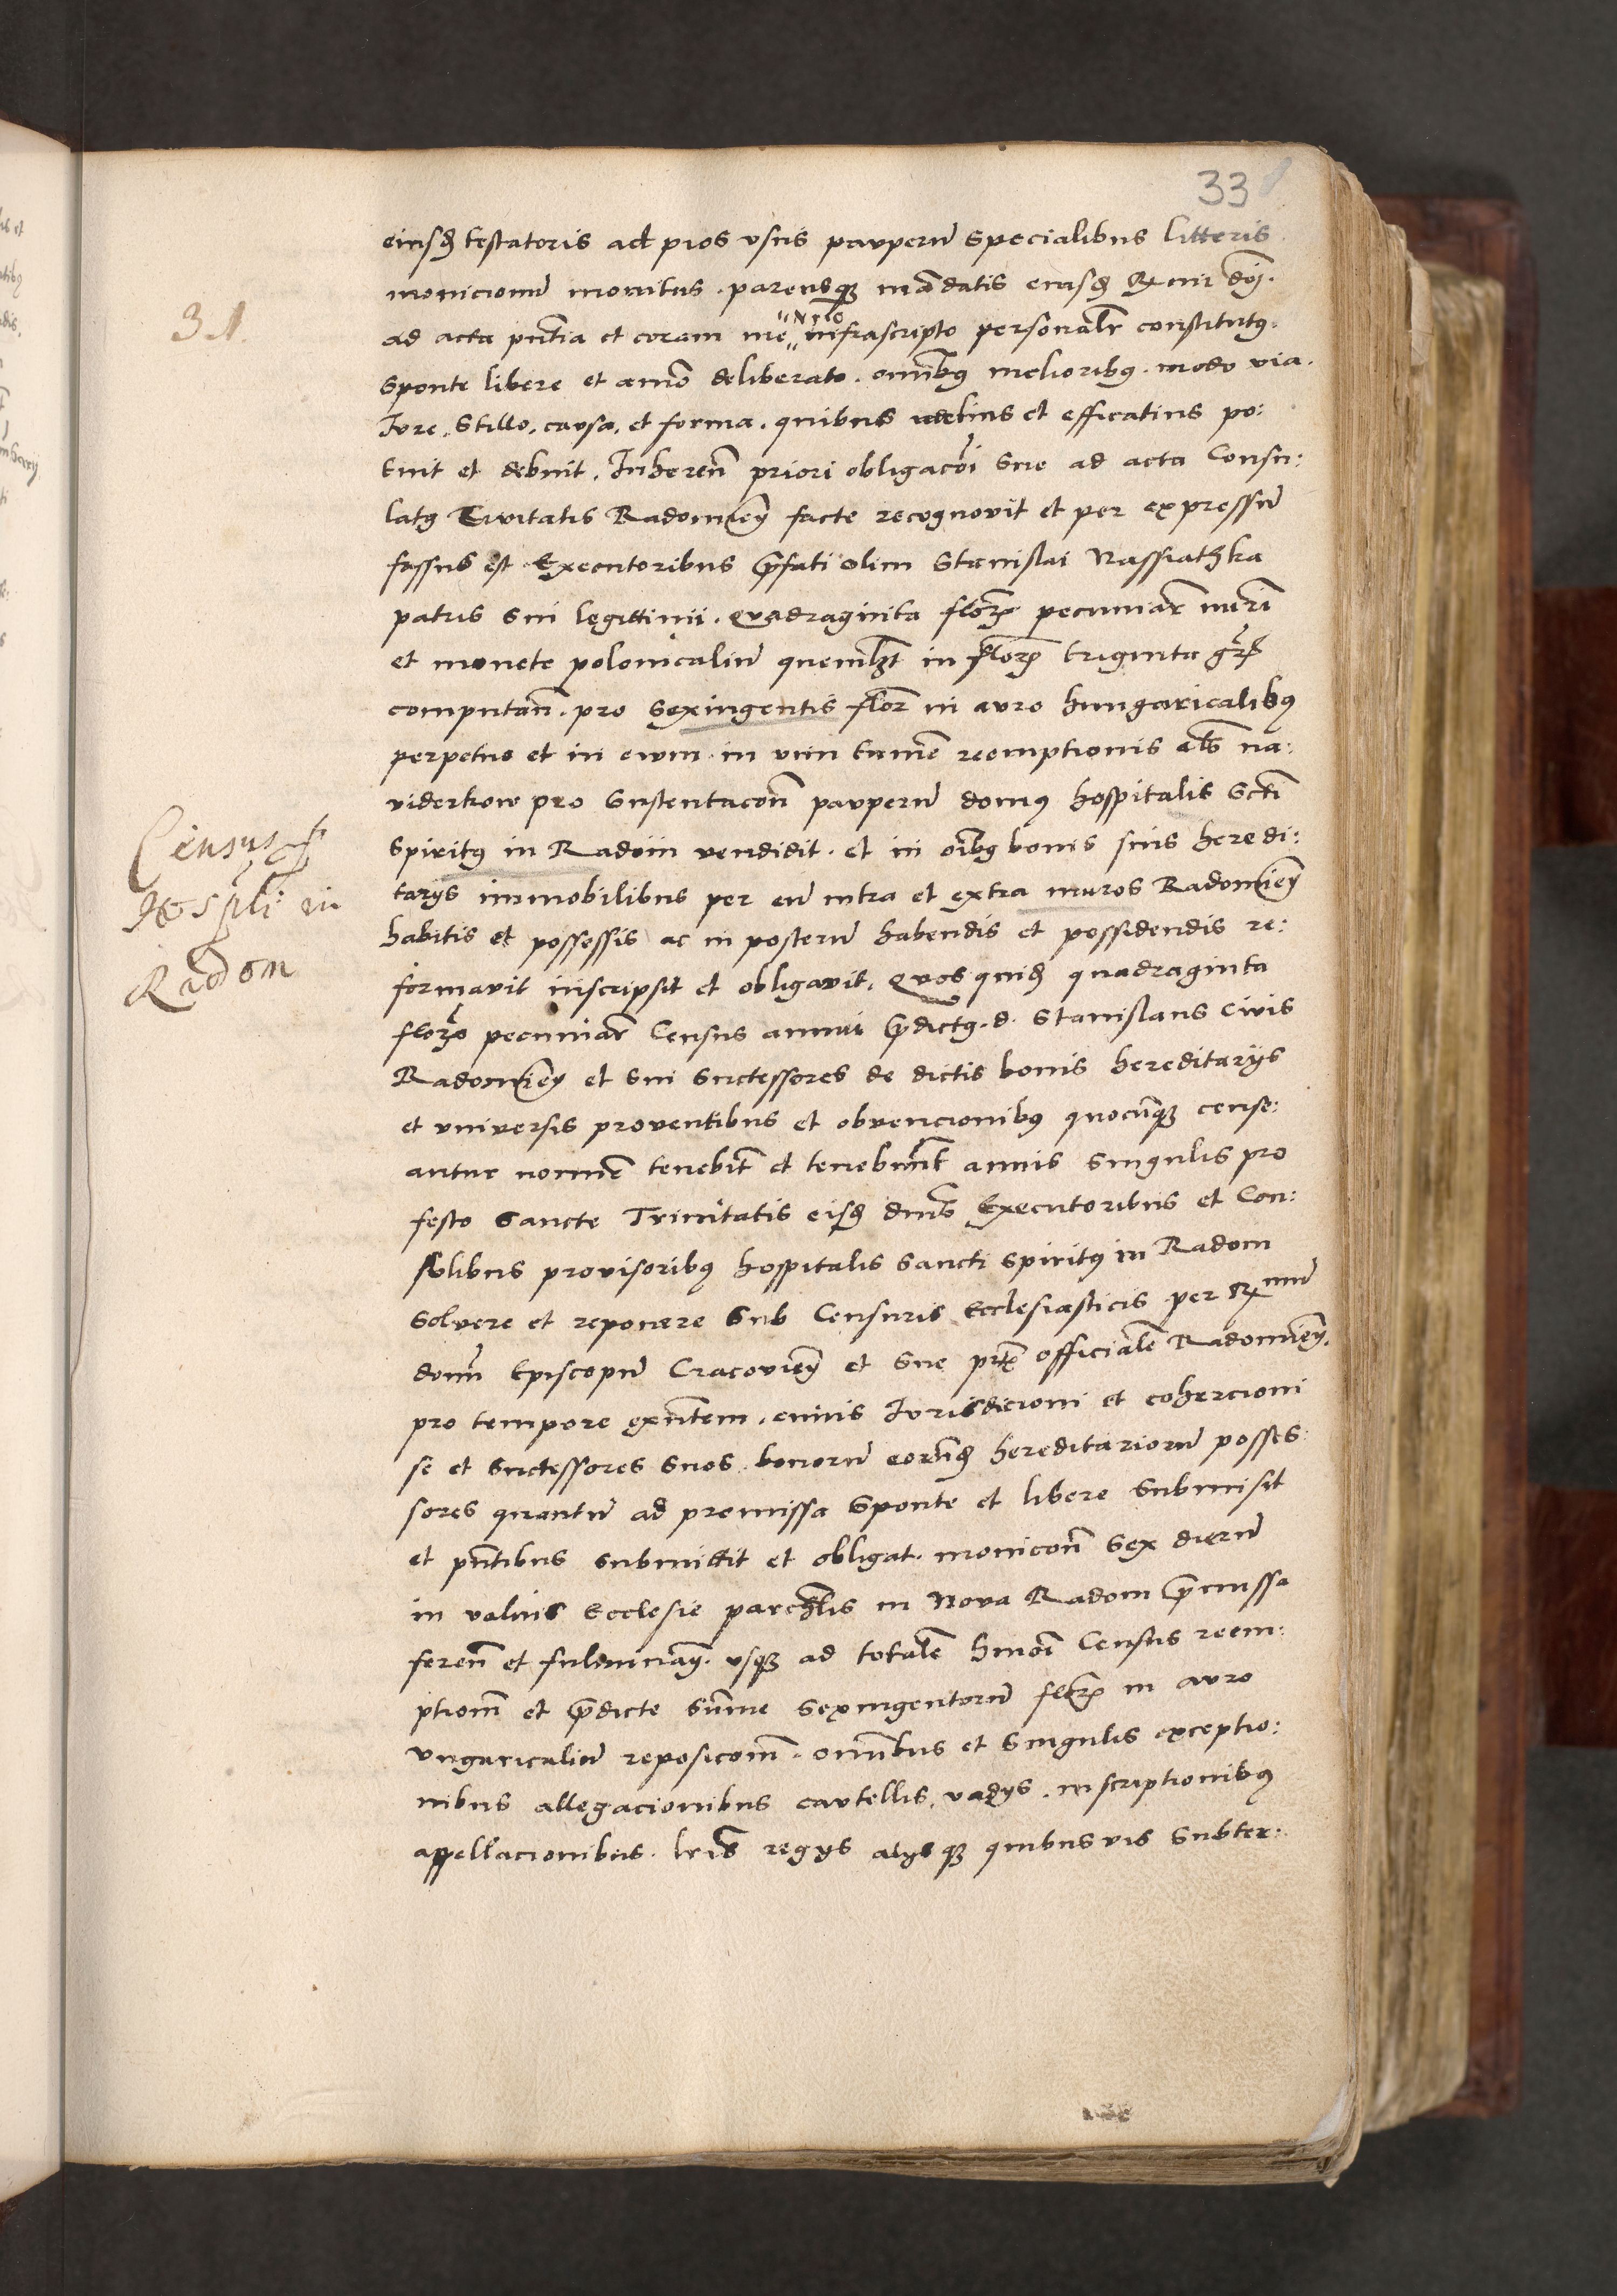 33
eiusđ testatoris ad pios vsus pauperũ specialibus litteris
monicionũ monitus. parensqʒ mãdatis eiusđ Rmi dnj.
31.
ad acta pñtia et coram me "Nrio" infrascripto personalr constitutꝯ.
sponte libere et aĩmo deliberato. omnibꝯ melioribꝯ. modo via.
Iure, Stillo, causa, et forma. quibus melius et efficatius po:
tuit et debuit. Inhereñ priori obligacõi sue ad acta Consu:
latꝯ Ciuitatis Radomieñ facte recognouit et per expressũ
fassus est Executoribus p̃fati olim Stanislai Nassiathka
patris sui legittimi. Quadraginta floreñ pecuniar̃ nũri
et monete polonicaliũ quemlʒt in floreñ triginta gr̃
computañ. pro sexingentis flor̃ in auro hungaricalibꝯ
perpetuo et in ewm. in vim tamẽ reemptionis als̃ na:
viderkow pro sustentacoñ pauperũ domꝯ hospitalis Scti
Spiritꝯ in Radom vendidit. et in oĩbꝯ bonis suis heredi:
Census p̃
Hospli in
Radom
tarys immobilibus per eũ intra et extra muros Radomieñ
habitis et possessis ac in posterũ habendis et possidendis re:
formauit inscripsit et obligauit. Quos quiđ quadraginta
floreños pecuniar̃ Census annui p̃dictꝯ. d. Stanislaus Ciuis
Radomieñ et sui suctessores de dictis bonis hereditarijs
et vniuersis prouentibus et obvencionibꝯ quocũqʒ cense:
antur nomine tenebit̃ et tenebunt̃ annis singulis pro
festo Sancte Trinitatis eisđ dnis̃ Executoribus et Con:
sulibus prouisoribꝯ hospitalis Sancti Spiritꝯ in Radom
soluere et reponere sub Censuris Ecclesiasticis per Rmũ
domĩ Episcopũ Cracouieñ et sue pr̃te officialẽ Radomieñ.
pro tempore exñtem. cuius Iurisdicioni et cohercioni
se et suctessores suos. bonorũ eorunđ hereditariorũ posses:
sores quantũ ad premissa sponte et libere submisit
et pñtibus submittit et obligat. monicoñ sex dierũ
in valuis Ecclesie parchlis in Noua Radom p̃missa
fereñ et fulminañ. vsqʒ ad totalẽ hmõi Census reem:
ptiom̃ et p̃dicte sum̃e sexingentorũ floreñ in auro
vngaricaliũ reposicom̃. omnibus et singulis exceptio:
nibus allegacionibus cautellis, vadys. inscriptionibꝯ
appellacionibus. lr̃is regys alysqʒ quibusuis subter: